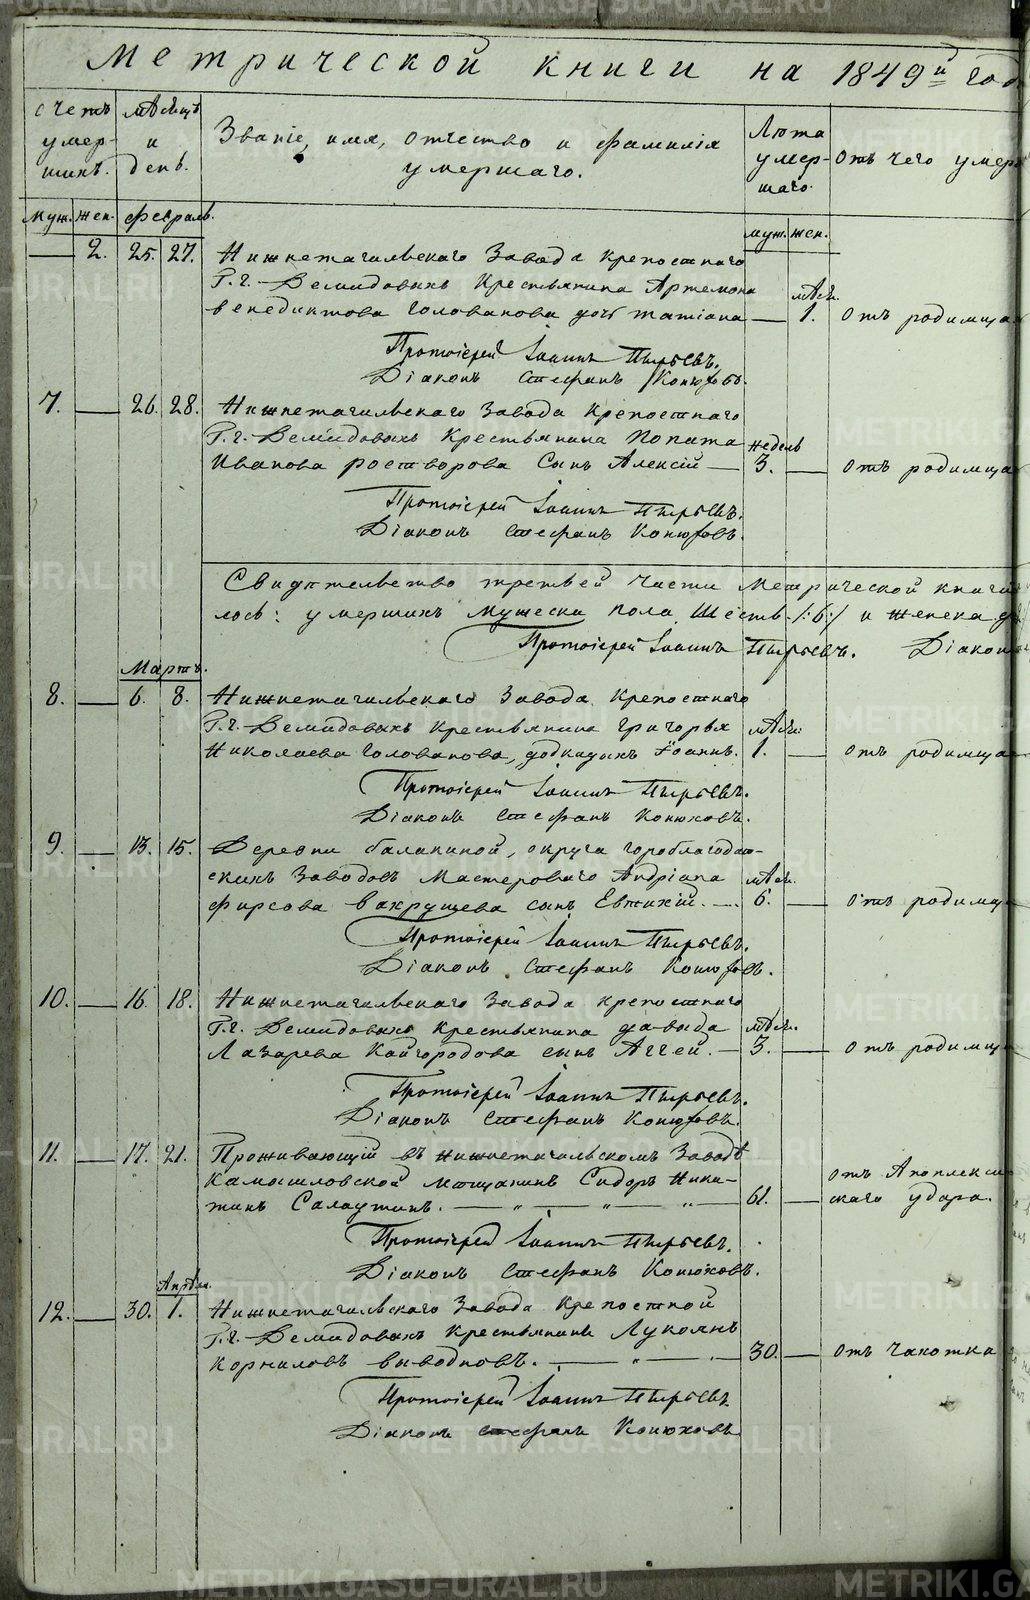 Метрической книги на 1849й год
счетъ умер-шихъ.
мѣсяцъ и день.
Званіе, имя, отчество и фамилія умершаго.
Лѣта умер-шаго.
Отъ чего умеръ
муж. жен. февраль. муж. жен.
2. 25. 27. Нижнетагильскаго Завода крепостнаго
Г.г. Демидовыхъ Крестьянина Артемона мѣся.
венедиктова Голованова дочь татіана 1. отъ родимца
Протоіерей Іоаннъ Пырьевъ.
Діаконъ Стефанъ Конюховъ.
7. 26. 28. Нижнетагильскаго Завода Крепостнаго
Г.г. Демидовыхъ Крестьянина Попата недель
Иванова ростворова Сынъ Алексій 3. отъ родимца
Протоіерей Іоаннъ Пырьевъ.
Діаконъ Стефанъ Конюховъ.
Свидѣтельство третьей части Метрической книги
лось: умершихъ Мужеска пола Шесть /:6:/ и женска
Протоіерей Іоаннъ Пырьевъ. Діаконъ
Мартъ.
8. 6. 8. Нижнетагильскаго Завода Крепостнаго
Г.г. Демидовыхъ Крестьянина Григорья мѣся:
Николаева Голованова, подкидышъ Іоаннъ. 1. отъ родимца
Протоіерей Іоаннъ Пырьевъ.
Діаконъ Стефанъ Конюховъ.
9. 13. 15. Деревни балакиной, округа гороблагодат-
скихъ Заводовъ Мастероваго Андріана мѣся.
фирсова вакрушева сынъ Евтихій. 6. отъ родимца
Протоіерей Іоаннъ Пырьевъ.
Діаконъ Стефанъ Конюховъ.
10. 16. 18. Нижнетагильскаго Завода крепостнаго
Г.г. Демидовыхъ крестьянина давыда мѣся.
Лазарева Кайгородова сынъ Аггей. 3. отъ родимца
Протоіерей Іоаннъ Пырьевъ.
Діаконъ Стефанъ Конюховъ.
11. 17. 21. Проживающій въ нижнетагильскомъ Заводѣ
Камышловской мѣщанинъ Сидоръ Ники- отъ Апоплекси
тинъ Салаутинъ. 61. скаго удара.
Протоіерей Іоаннъ Пырьевъ.
Діаконъ Стефанъ Конюховъ.
Апрѣля.
12. 30. 1. Нижнетагильскаго Завода Крепостной
Г.г. Демидовыхъ Крестьянинъ Лукоянъ
Корниловъ выводновъ. 30. отъ чахотки
Протоіерей Іоаннъ Пырьевъ
Діаконъ Стефанъ Конюховъ
METRIKI.GASO-URAL.RU